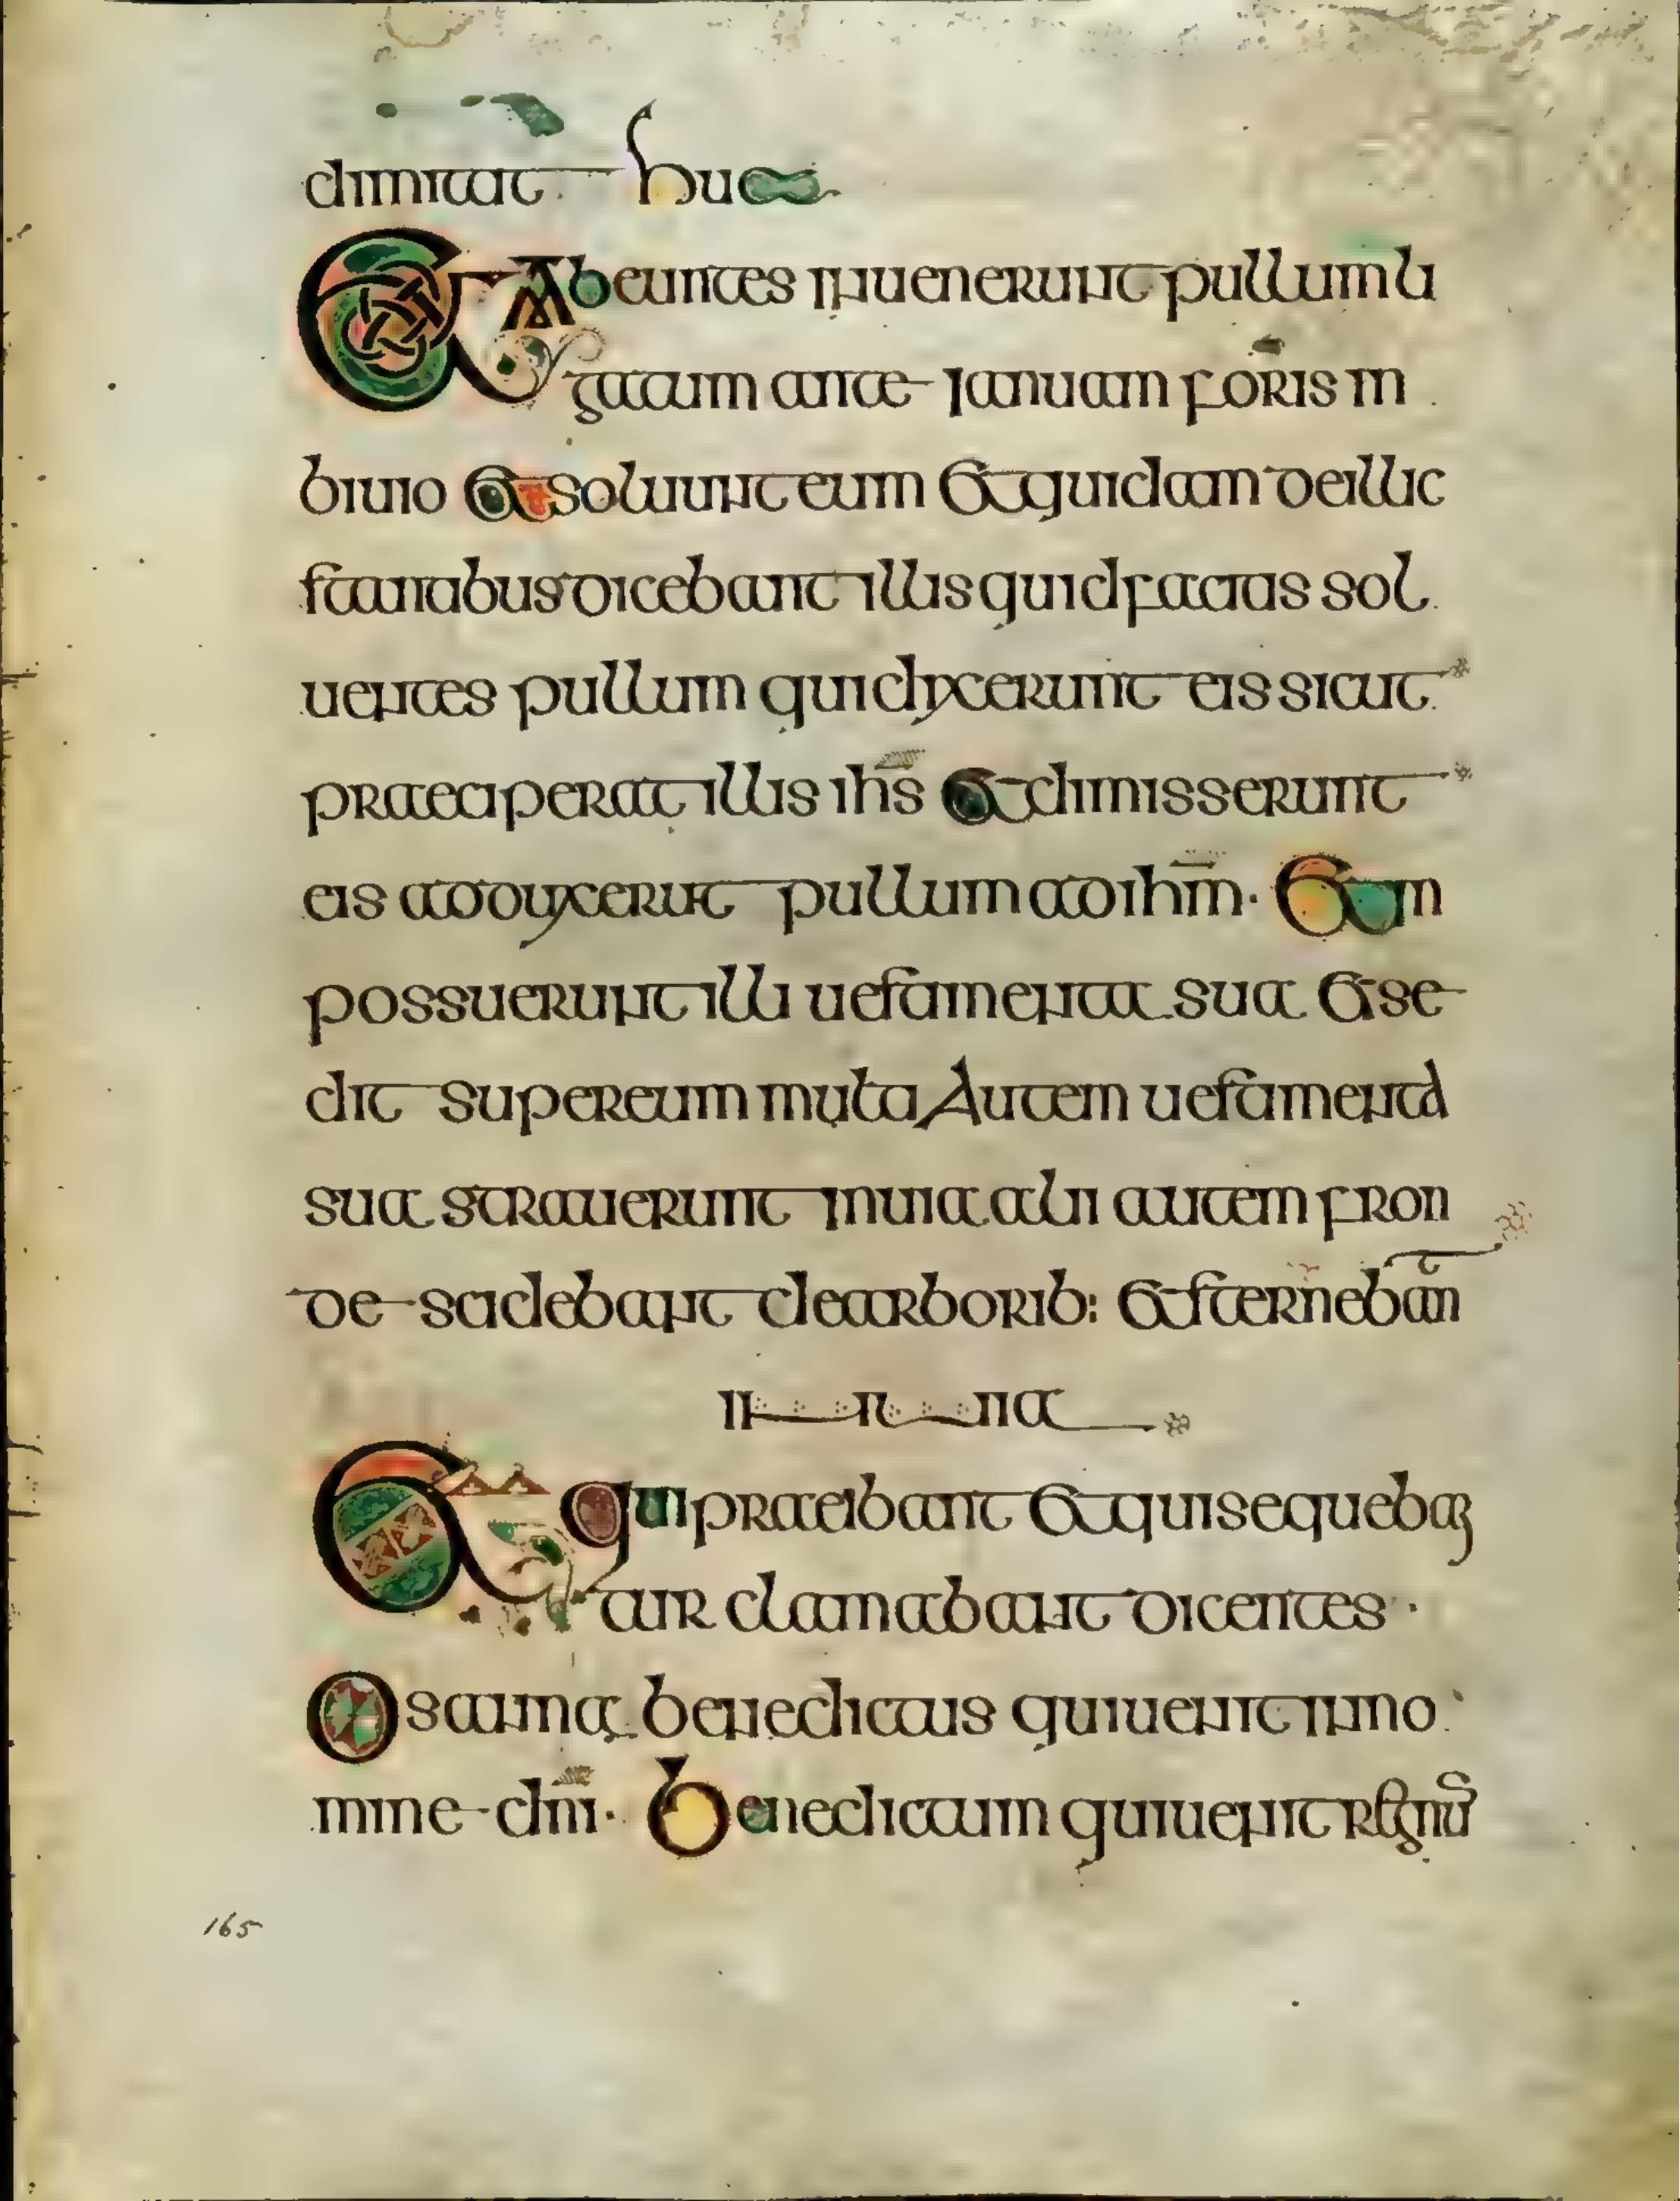 dimitat huc
Et abeuntes inuenerunt pullum li
gatum ante ianuam foris in
biuio et soluunt eum et quidam de illic
stantibus dicebant illis quid facitis sol
uentes pullum qui dixcerunt eis sicut
praeciperat illis ihs et dimisserunt
eis adduxcerunt pullum ad ihm · Et in
possuerunt illi uestimenta sua et se
dit super eum multa autem uestimenta
sua strauerunt in uia alii autem fron
de scidebant de arborib: et sternebant
in uia
Et qui praeibant et qui sequeban
tur clamabant dicentes ·
Osanna benedictus qui uenit in no
mine dni · Benedictum qui uenit regnū
165